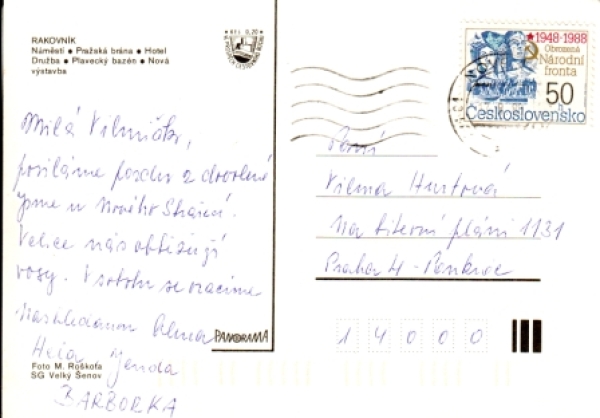 RAKOVNÍK
Náměstí ● Pražská brána ● Hotel
Družba ● Plavecký bazén ● Nová
výstavba
Kčs 0,20
★1948-1988
Obrozená
Národní
fronta
50
Československo
Milá Vilmičko,
posíláme pozdrav z dovolené
jsme u Nového Strašecí.
Velice nás obtěžují
vosy. V sobotu se vracíme
Nashledanou Alena
Jenda
BARBORKA
Paní
Vilma Hurtová
Na bitevní pláni 1131
Praha 4 - Pankrác
14000
PANORAMA
Foto M. Roškofa
SG Velký Šenov